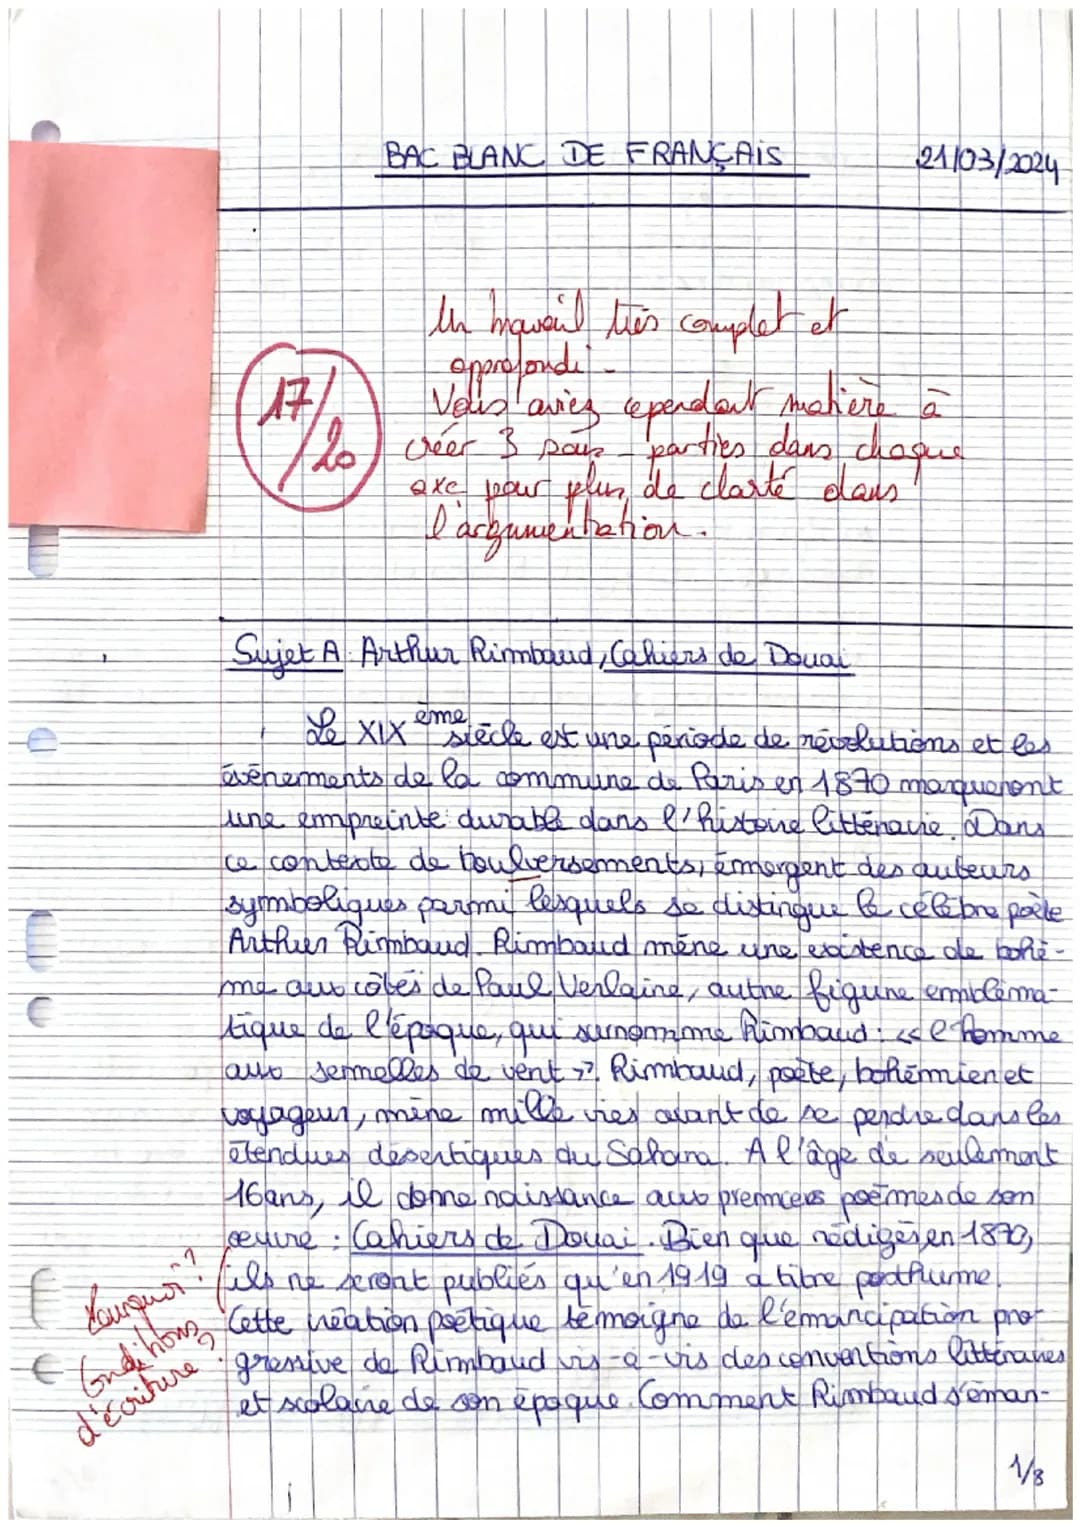 BAC BLANC DE FRANÇAIS 21/03/2024
Un travail très complet et
approfondi.
17/20
Vous aviez cependant matière à
créer 3 sous-parties dans chaque
axe pour plus de clarté dans
l'argumentation.
Sujet A : Arthur Rimbaud, Cahiers de Douai
Le XIX ème siècle est une période de révolutions et les
évènements de la commune de Paris en 1870 marqueront
une empreinte durable dans l'histoire littéraire. Dans
ce contexte de boulversements, émergent des auteurs
symboliques parmi lesquels se distingue le célèbre poète
Arthur Rimbaud. Rimbaud mène une existence de bohè-
me aux côtés de Paul Verlaine, autre figure embléma-
tique de l'époque, qui surnomme Rimbaud : « l'homme
aux semelles de vent ». Rimbaud, poète, bohémien et
voyageur, mène mille vies avant de se perdre dans les
étendues désertiques du Sahara. A l'âge de seulement
16 ans, il donne naissance aux premiers poèmes de son
œuvre : Cahiers de Douai. Bien que rédigés en 1870,
ils ne seront publiés qu'en 1919 à titre posthume.
Cette création poétique témoigne de l'émancipation pro-
gressive de Rimbaud vis-à-vis des conventions littéraires
et scolaire de son époque. Comment Rimbaud s'éman-
Pourquoi ?
Conditions
d'écriture ?
1/8